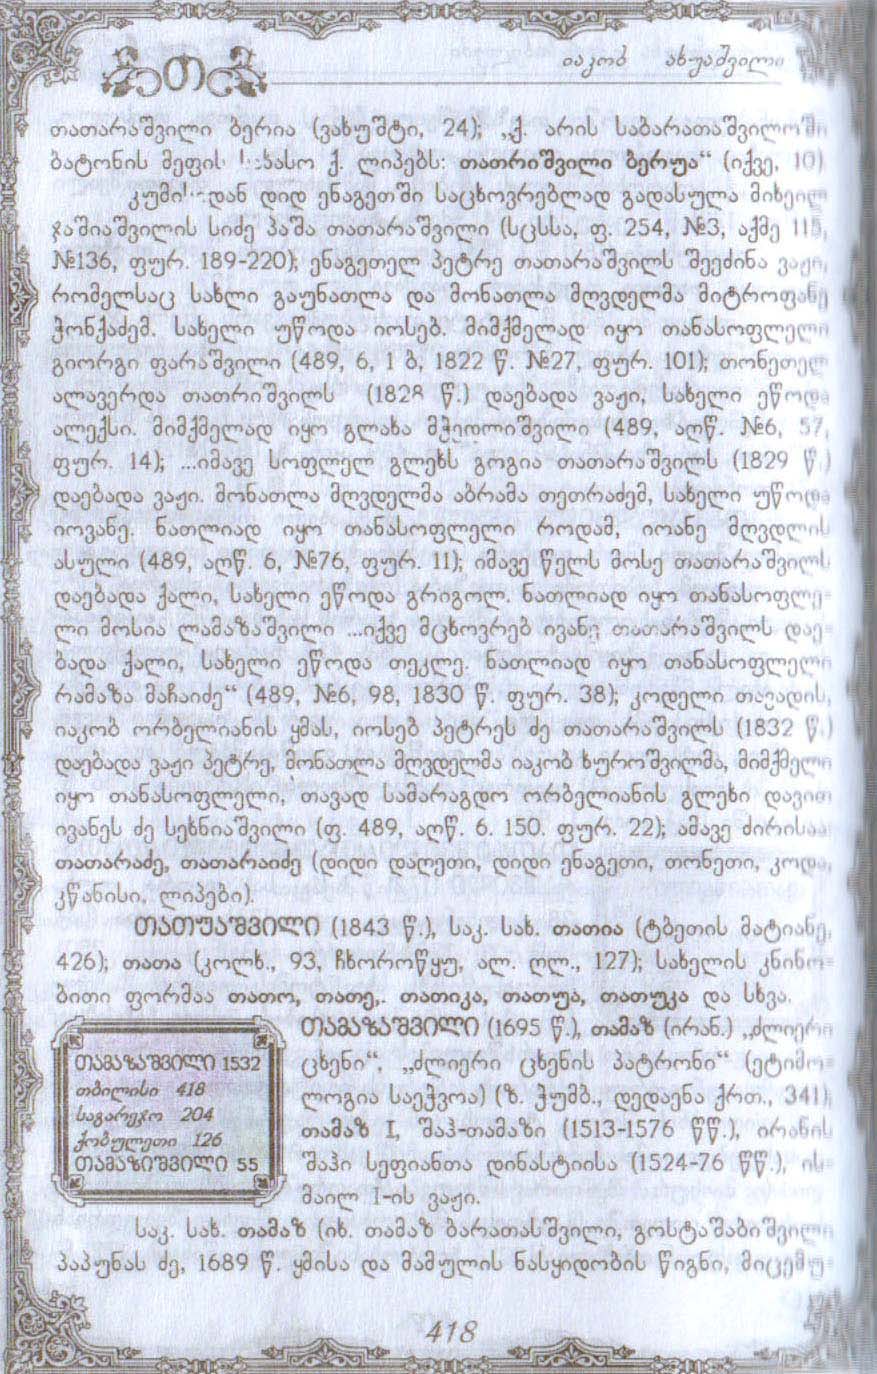 თ
იაკობ ახუაშვილი
თათარაშვილი ბერია (ვახუშტი, 24); „ქ. არის საბარათაშვილოში
ბატონის მეფის ქ. ლიპებს: თათრიშვილი ბერუა“ (იქვე, 10)
დიდ ენაგეთში საცხოვრებლად გადასულა მიხეილ
ჯაშიაშვილის სიძე პაშა თათარაშვილი (სცსსა, ფ. 254, №3, აქმე 115,
№136, ფურ. 189-220); ენაგეთელ პეტრე თათარაშვილს შეეძინა ვაჟი,
რომელსაც სახლი გაუნათლა და მონათლა მღვდელმა მიტროფანე
ჭონქაძემ. სახელი უწოდა იოსებ. მიმქმელად იყო თანასოფლელი
გიორგი ფარაშვილი (489, 6, 1 ბ, 1822 წ. №27, ფურ. 101); თონეთელ
ალავერდა თათრიშვილს (1828 წ.) დაებადა ვაჟი, სახელი ეწოდა
ალექსი. მიმქმელად იყო გლახა მჭედლიშვილი (489, აღწ. №6, 57,
ფურ. 14); ...იმავე სოფლელ გლეხს გოგია თათარაშვილს (1829 წ.)
დაებადა ვაჟი. მონათლა მღვდელმა აბრამა თეთრაძემ, სახელი უწოდა
იოვანე. ნათლიად იყო თანასოფლელი როდამ, იოანე მღვდლის
ასული (489, აღწ. 6, №76, ფურ. 11); იმავე წელს მოსე თათარაშვილს
დაებადა ქალი, სახელი ეწოდა გრიგოლ. ნათლიად იყო თანასოფლე-
ლი მოსია ლამაზაშვილი ...იქვე მცხოვრებ ივანე თათარაშვილს დაე-
ბადა ქალი, სახელი ეწოდა თეკლე. ნათლიად იყო თანასოფლელი
რამაზა მაჩაიძე“ (489, №6, 98, 1830 წ. ფურ. 38); კოდელი თავადის,
იაკობ ორბელიანის ყმას, იოსებ პეტრეს ძე თათარაშვილს (1832 წ.)
დაებადა ვაჟი პეტრე, მონათლა მღვდელმა იაკობ ხუროშვილმა, მიმქმელი
იყო თანასოფლელი, თავად სამარაგდო ორბელიანის გლეხი დავით
ივანეს ძე სეხნიაშვილი (ფ. 489, აღწ. 6. 150. ფურ. 22); ამავე ძირისაა
თათარაძე, თათარაიძე (დიდი დაღეთი, დიდი ენაგეთი, თონეთი, კოდა,
კწანისი, ლიპები).
თათუაშვილი (1843 წ.), საკ. სახ. თათია (ტბეთის მატიანე,
426); თათა (კოლხ., 93, ჩხოროწყუ, ალ. ღლ., 127); სახელის კნინო-
ბითი ფორმაა თათო, თათე,. თათიკა, თათუა, თათუკა და სხვა.
თამაზაშვილი (1695 წ.), თამაზ (ირან.) „ძლიერი
ცხენი“, „ძლიერი ცხენის პატრონი“ (ეტიმო-
ლოგია საეჭვოა) (ზ. ჭუმბ., დედაენა ქრთ., 341),
თამაზ I, შაჰ-თამაზი (1513-1576 წწ.), ირანის
შაჰი სეფიანთა დინასტიისა (1524-76 წწ.), ის-
მაილ I-ის ვაჟი.
თამაზაშვილი 1532
თბილისი 418
საგარეჯო 204
ქობულეთი 126
თამაზიშვილი 55
საკ. სახ. თამაზ (იხ. თამაზ ბარათასშვილი, გოსტაშაბიშვილი
პაპუნას ძე, 1689 წ. ყმისა და მამულის ნასყიდობის წიგნი, მიცემუ-
418